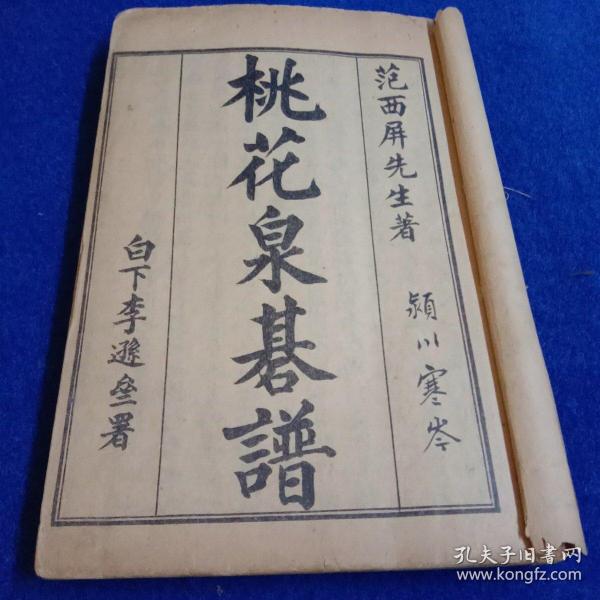 范西屏先生著
潁川寒岑
桃花泉棊譜
白下李遜垒署
孔夫子旧书网
www.kongfz.com